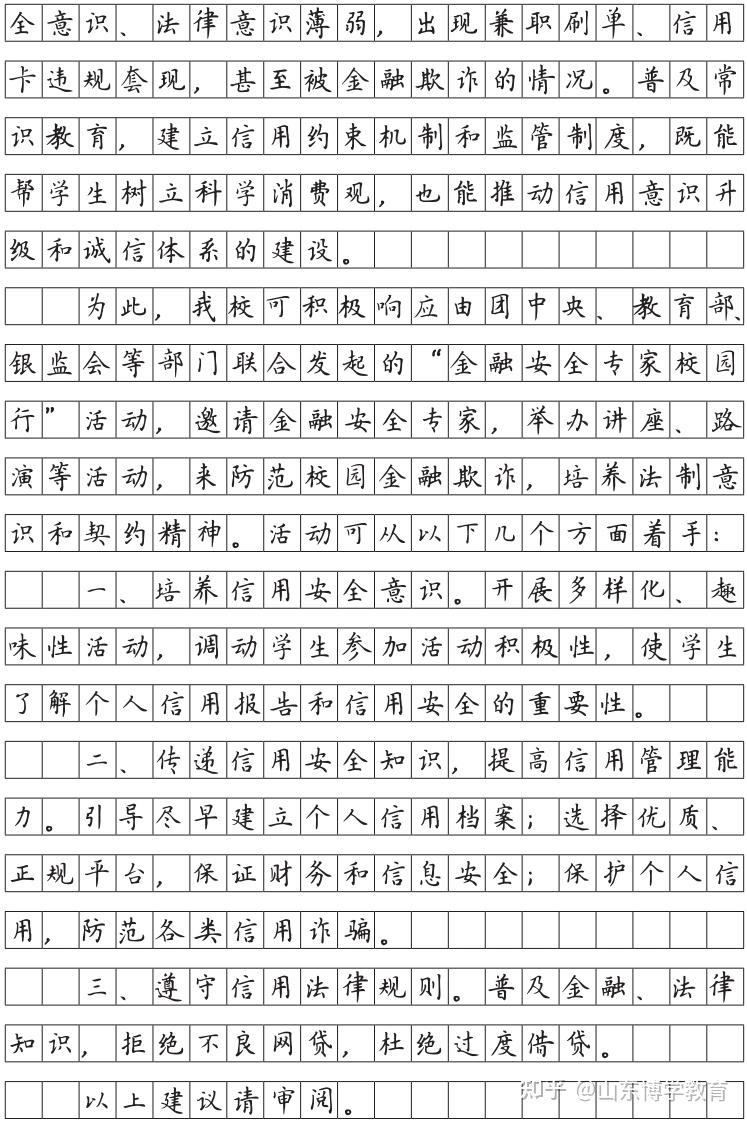 全意识、法律意识薄弱，出现兼职刷单、信用
卡违规套现，甚至被金融欺诈的情况。普及常
识教育，建立信用约束机制和监管制度，既能
帮学生树立科学消费观，也能推动信用意识升
级和诚信体系的建设。
为此，我校可积极响应由团中央、教育部、
银监会等部门联合发起的“金融安全专家校园
行”活动，邀请金融安全专家，举办讲座、路
演等活动，来防范校园金融欺诈，培养法制意
识和契约精神。活动可从以下几个方面着手：
一、培养信用安全意识。开展多样化、趣
味性活动，调动学生参加活动积极性，使学生
了解个人信用报告和信用安全的重要性。
二、传递信用安全知识，提高信用管理能
力。引导尽早建立个人信用档案；选择优质、
正规平台，保证财务和信息安全；保护个人信
用，防范各类信用诈骗。
三、遵守信用法律规则。普及金融、法律
知识，拒绝不良网贷，杜绝过度借贷。
以上建议请审阅。
知乎 @山东博学教育